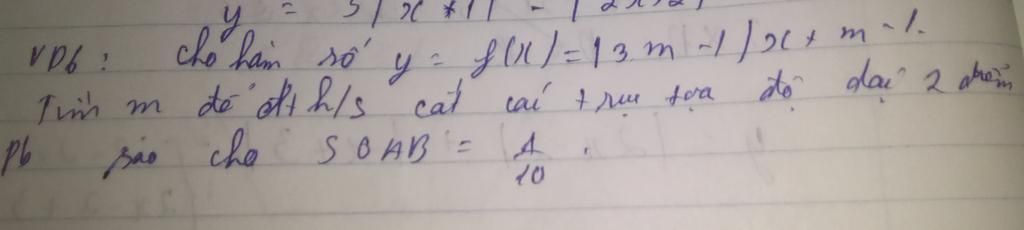 y = 3|x+1| - |2x
VD6: Cho hàm số y = f(x) = |3m-1|x + m-1.
Tìm m để đt h/s cắt các trục tọa độ tại 2 điểm
Pb sao cho SOAB = 1/10.